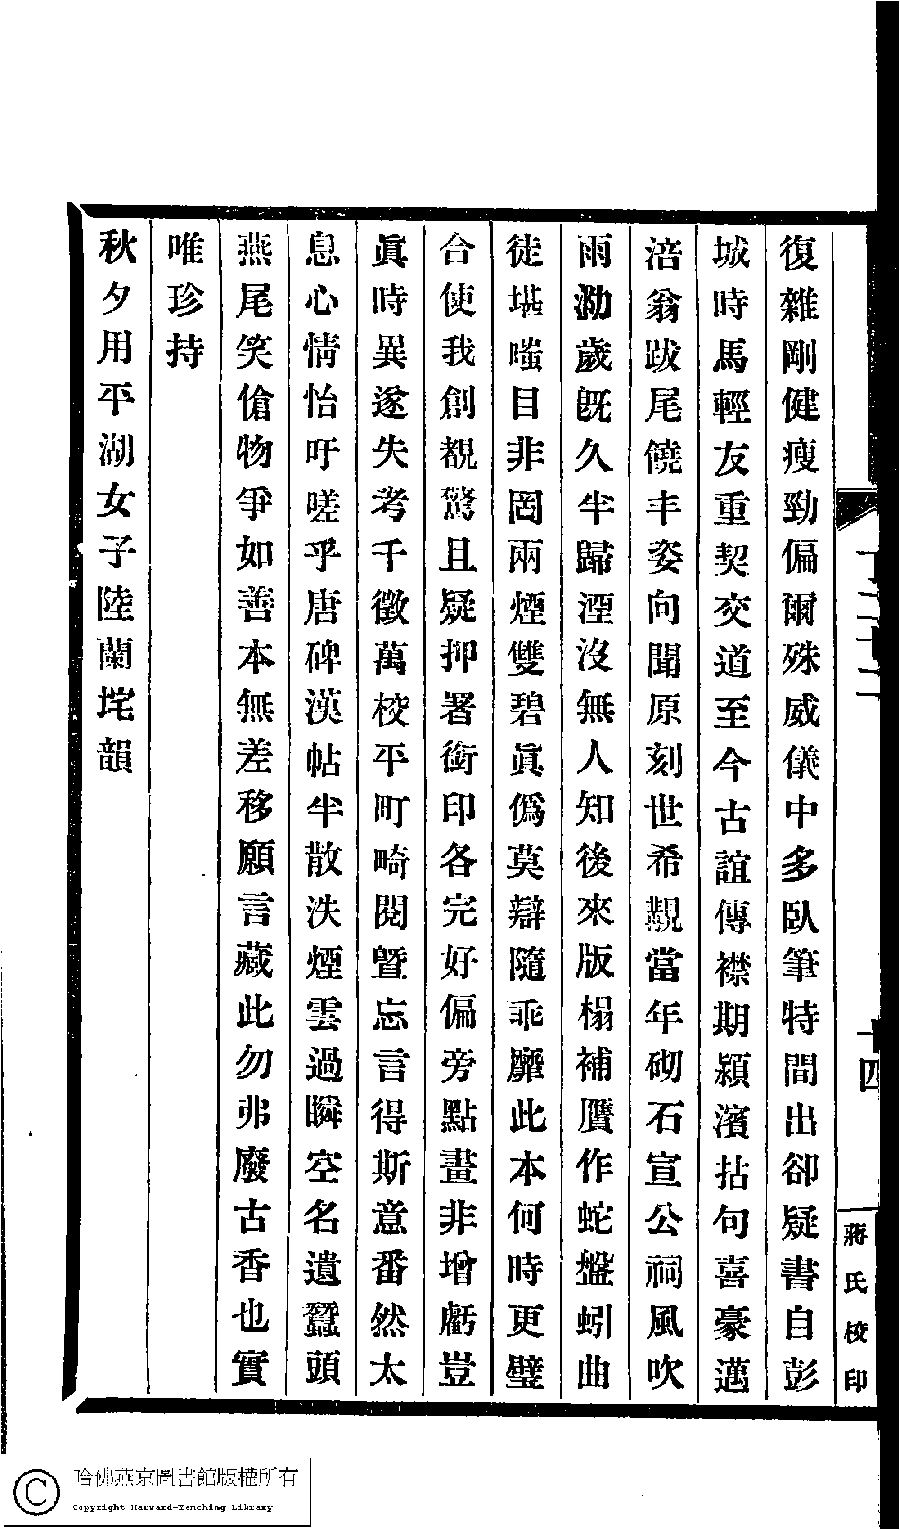 復雜剛健瘦勁偏爾殊威儀中多臥筆特間出卻疑書自彭
城時馬輕友重契交道至今古誼傳襟期潁濱拈句喜豪邁
涪翁跋尾饒丰姿向聞原刻世希覯當年砌石宣公祠風吹
雨泐歲旣久半歸湮沒無人知後來版榻補贋作蛇盤蚓曲
徒堪嗤目非罔兩煙雙碧眞僞莫辯隨乖靡此本何時更璧
合使我創覩驚且疑押署銜印各完好偏旁點畫非增虧豈
眞時異遂失考千徵萬校平町畦閱曁忘言得斯意番然太
息心情怡吁嗟乎唐碑漢帖半散泆煙雲過瞬空名遺蠶頭
燕尾笑傖物爭如善本無差移願言藏此勿弗廢古香也實
唯珍持
秋夕用平湖女子陸蘭垞韻
十四
蔣氏校印
哈佛燕京圖書館版權所有
Copyright Harvard-Yenching Library